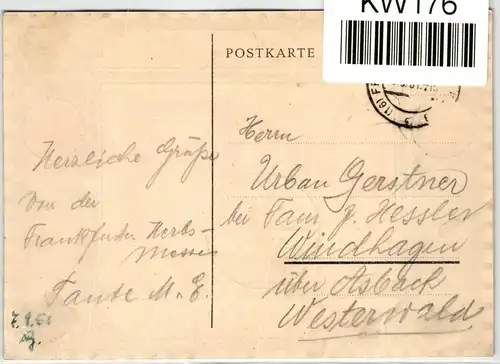 KW176
POSTKARTE
(16) FR
Herzliche Grüße
von der
Frankfurter Herbs-
messe
Tante M. E.
7.9.51
Herrn
Urban Gerstner
bei Fam. J. Hessler
Windhagen
über Asbach
Westerwald